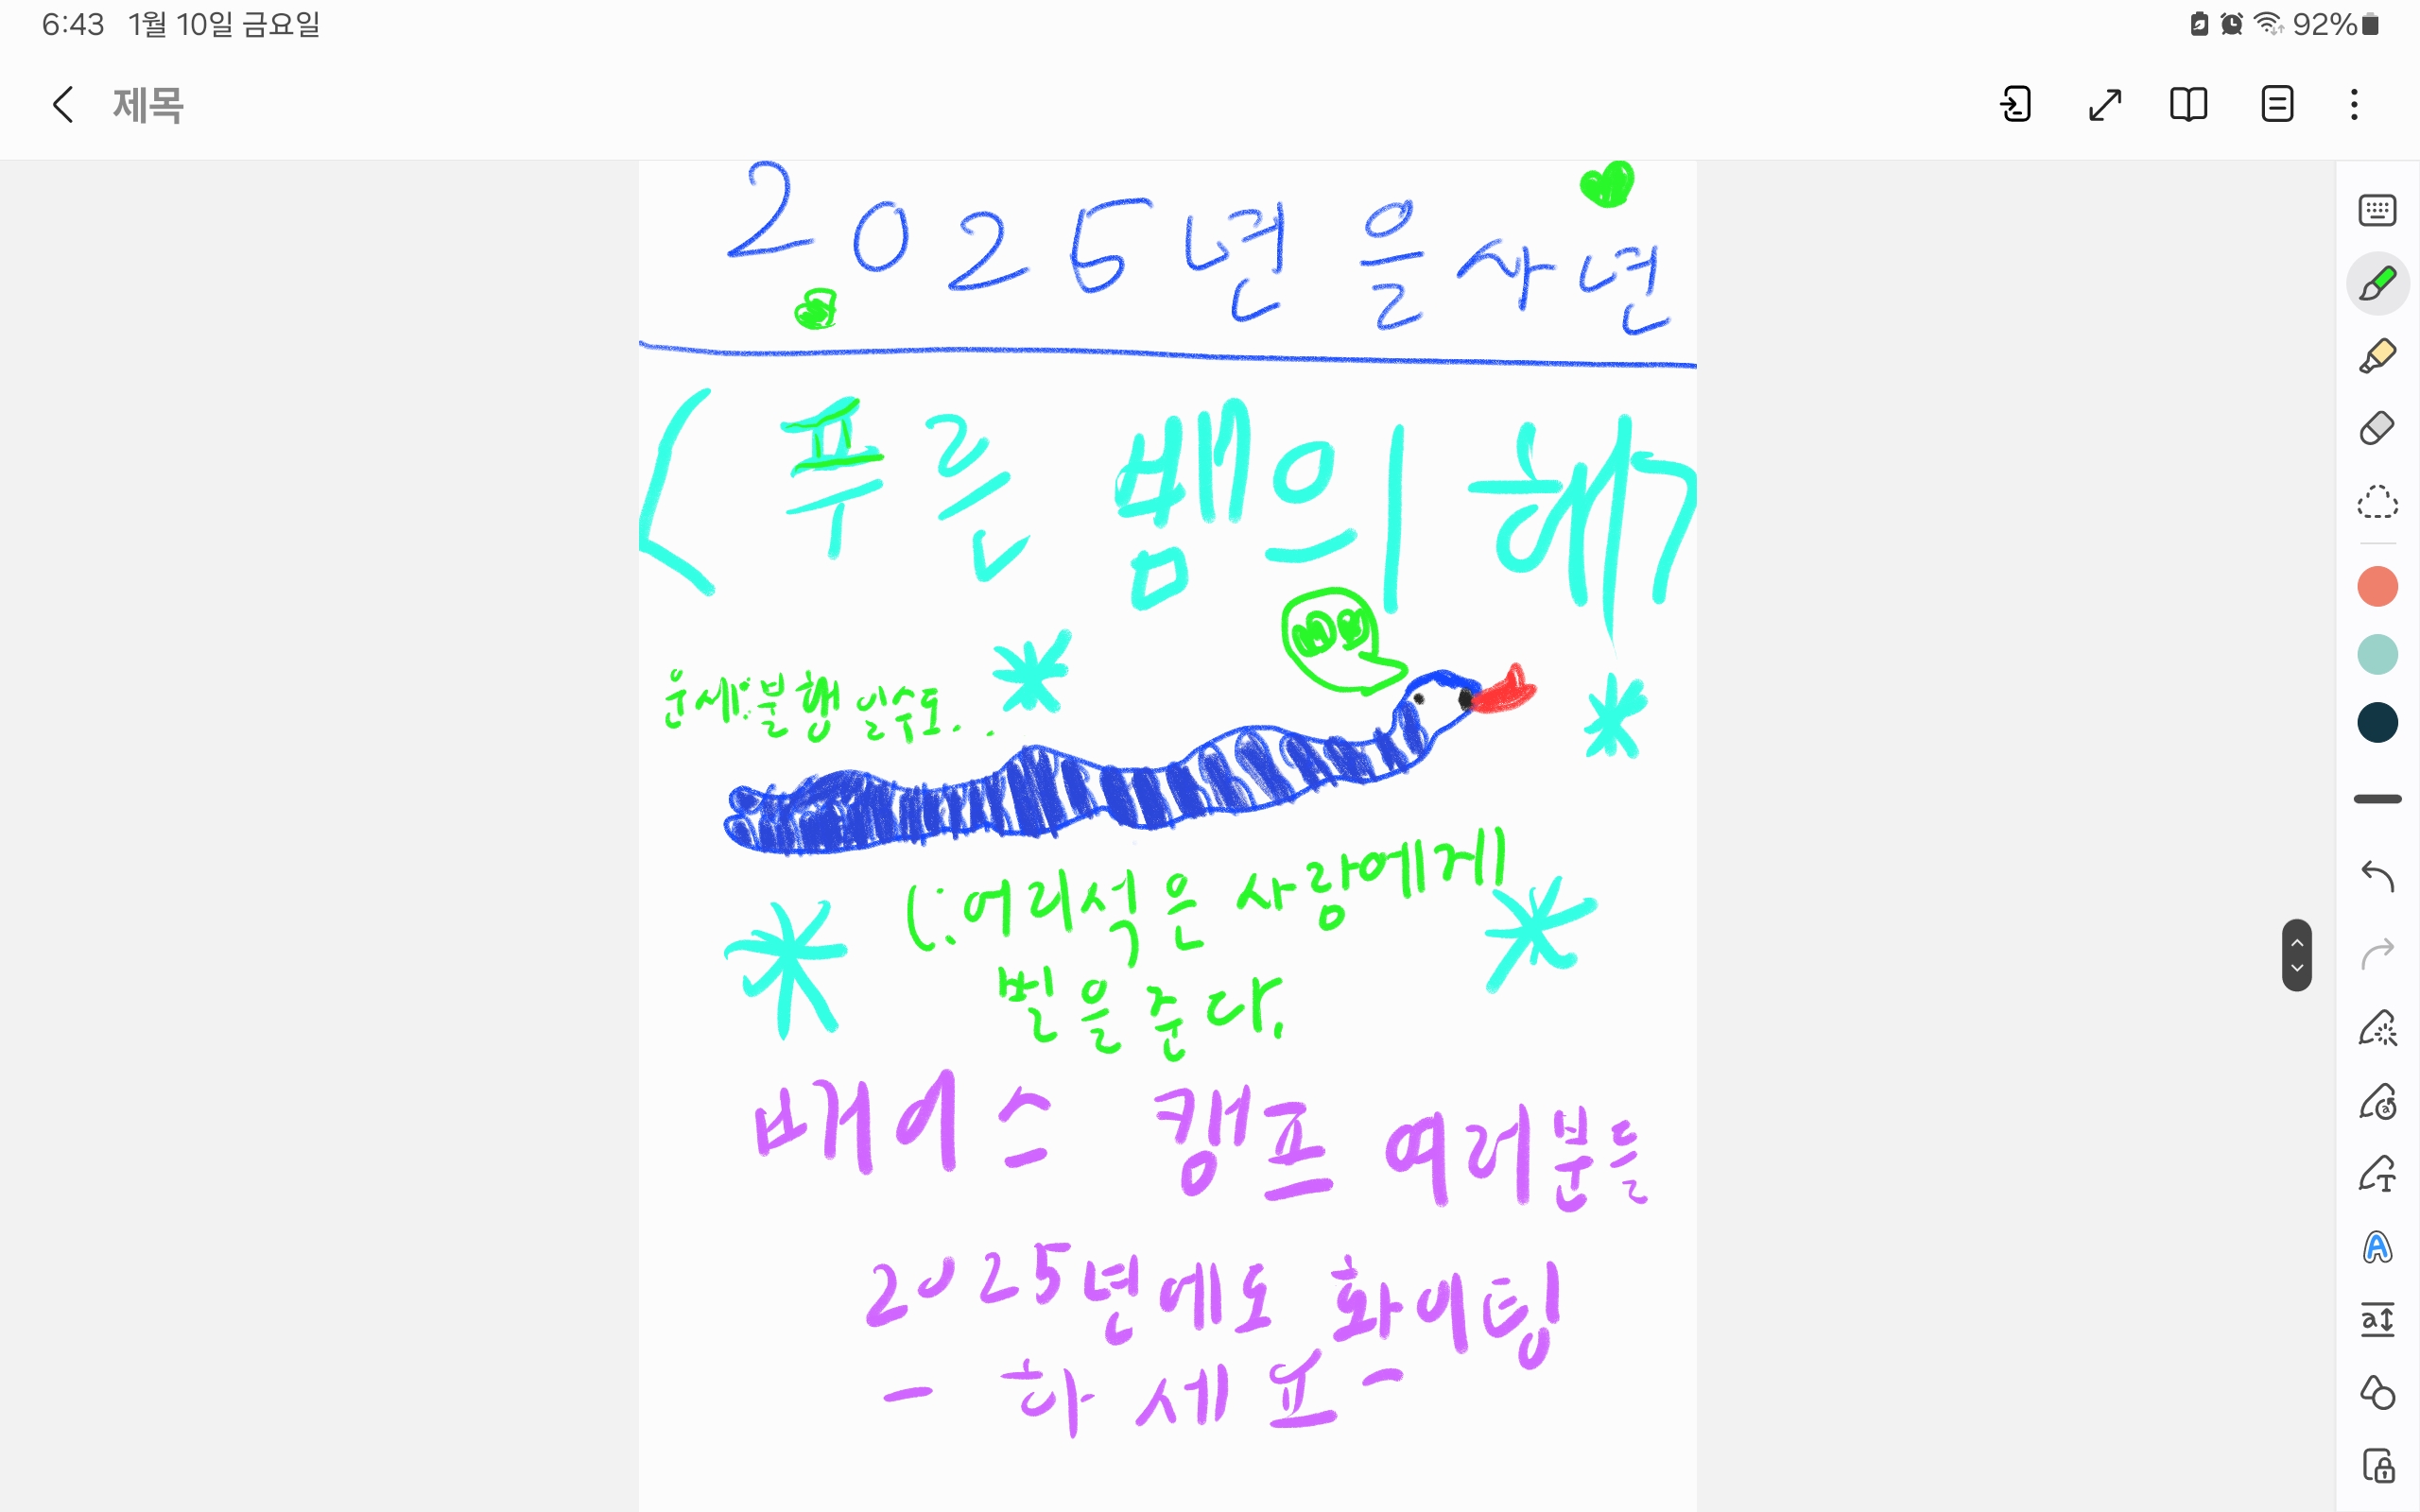 6:43 1월 10일 금요일
92%
제목
2025년 을사년
<푸른 뱀의 해>
운세:불행 일수도..
(:어리석은 사람에게
벌을 준다.
베이스 캠프 여러분들
2025년에도 화이팅
- 하세요 -